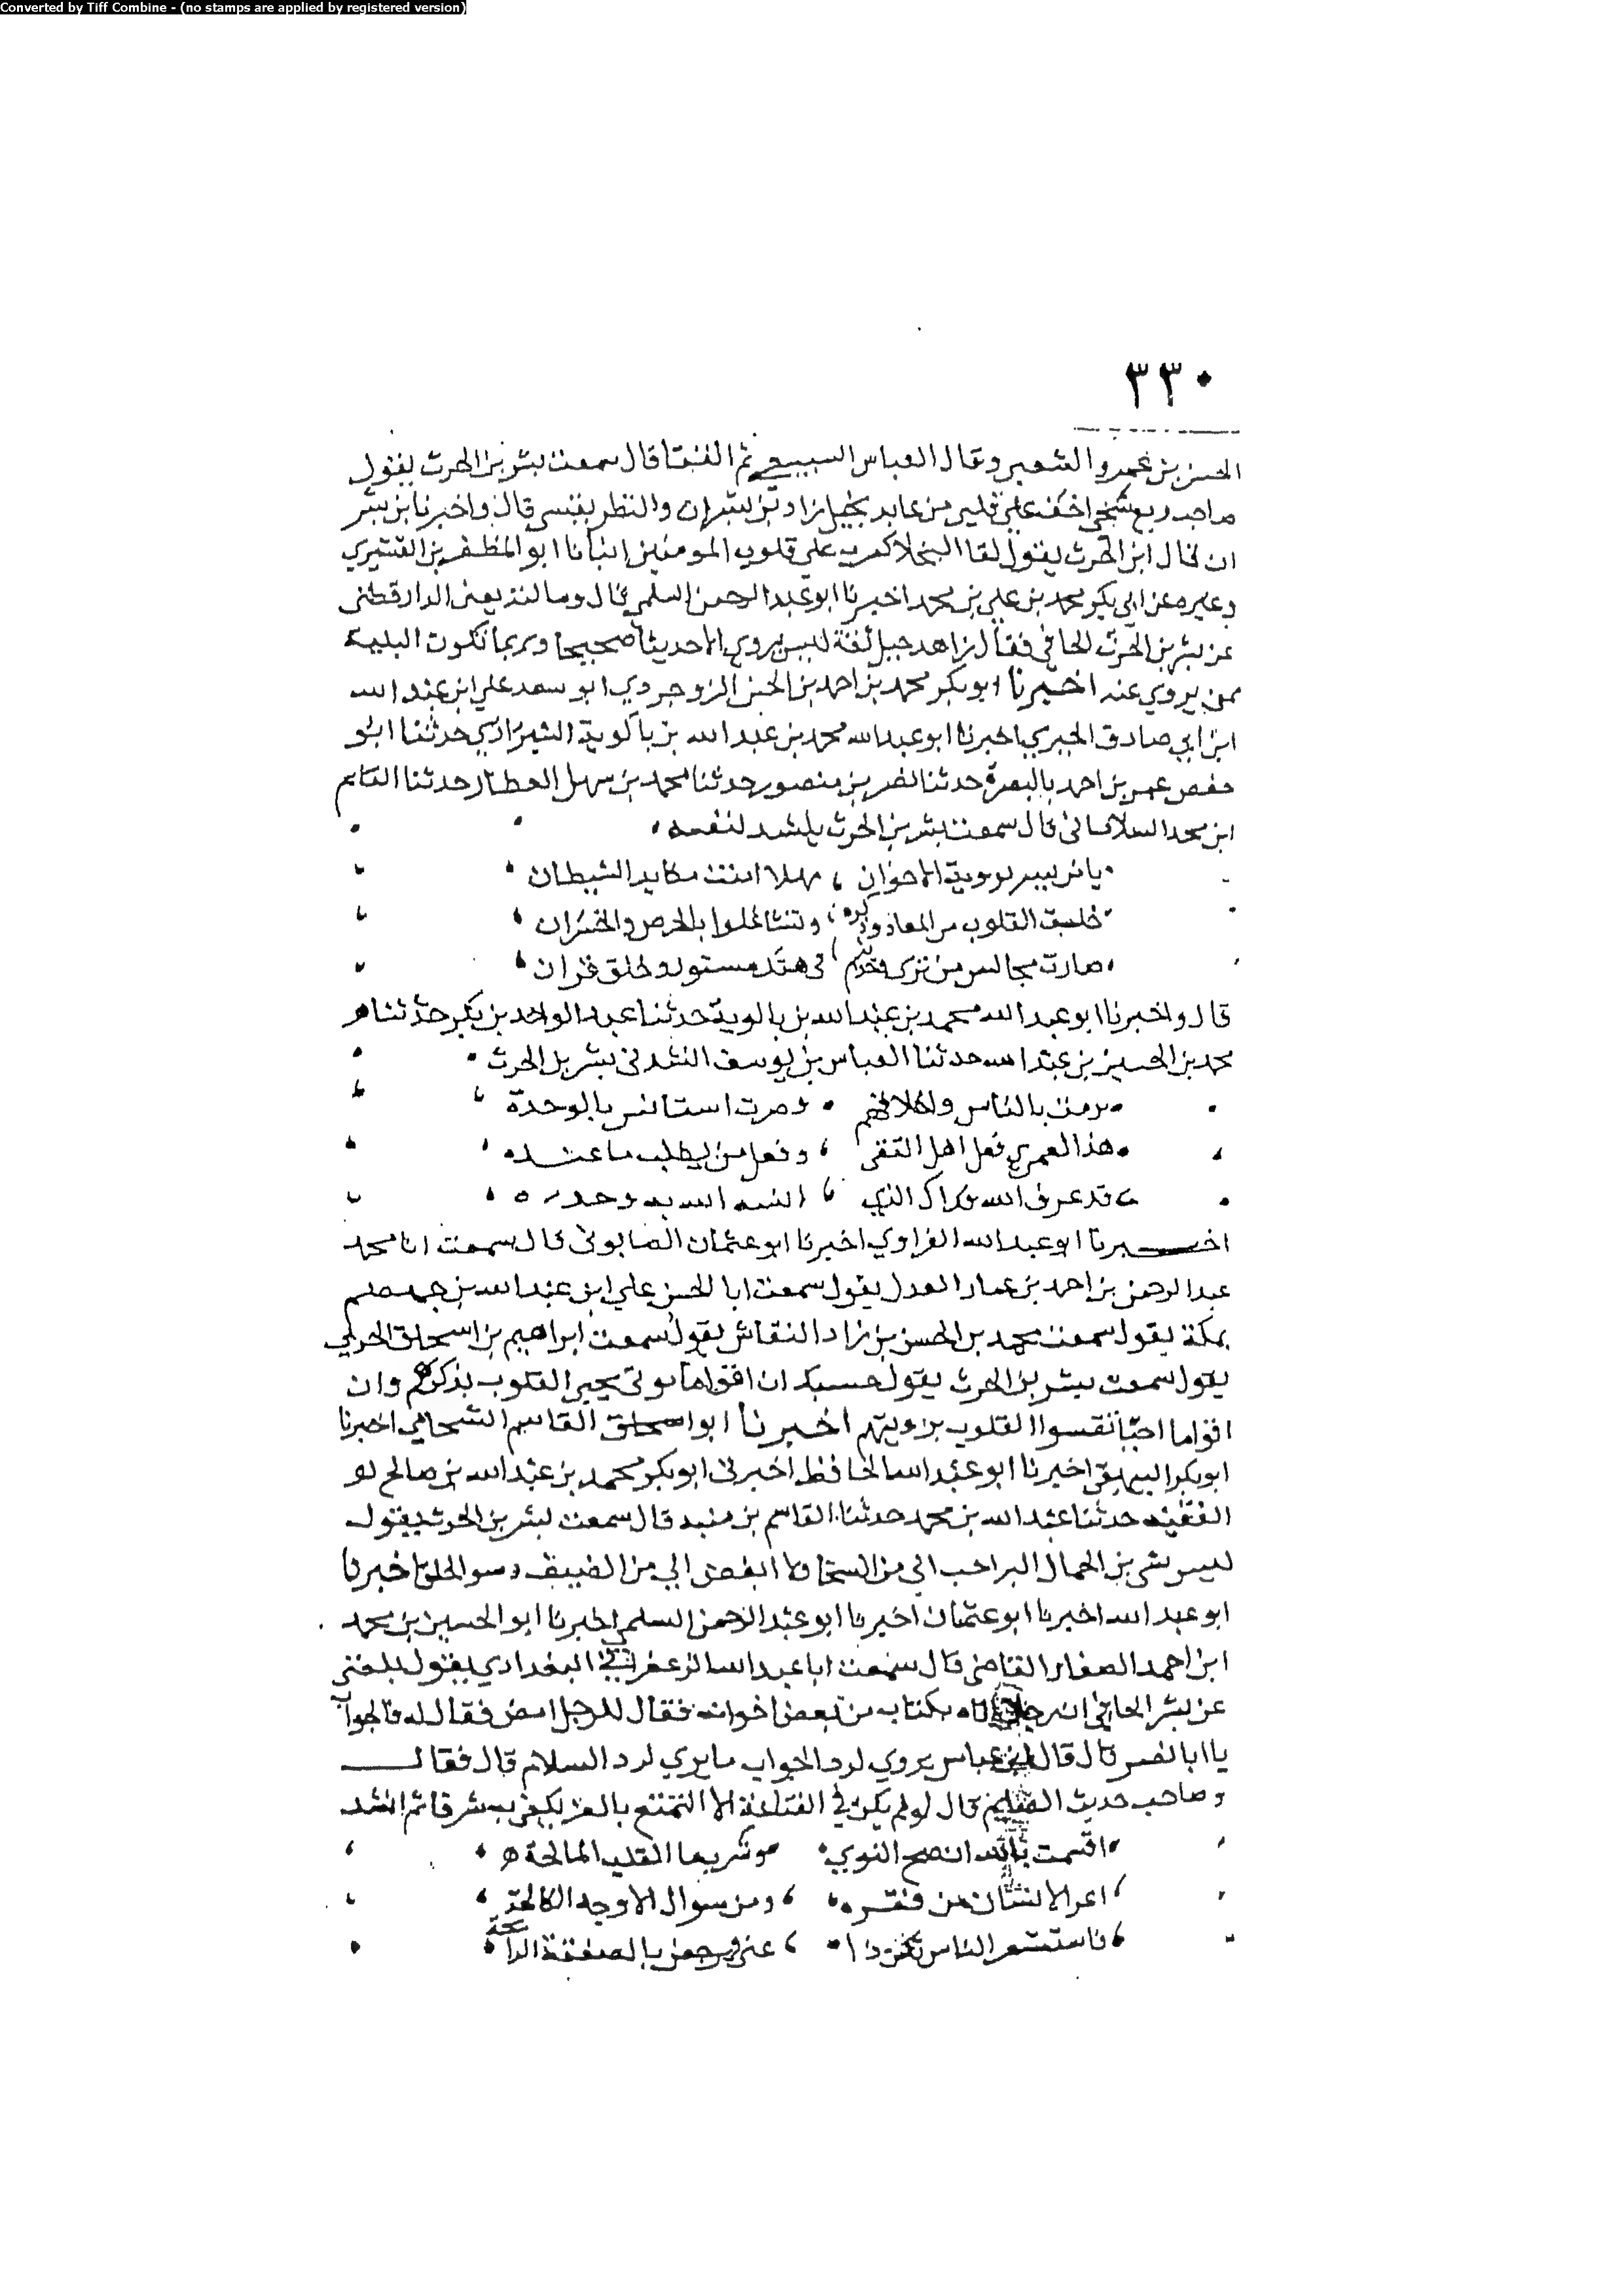 Converted by Tiff Combine - (no stamps are applied by registered version)
٣٣٠
الحسن بن عمرو الشعير وقال العباس السبيعي ثم اتفقا قال سمعت بشر بن الحرث يقول
ما جد ربع اخف علي قلبي من عابد بخيل زاد بن بشران والنظر يقسي قال واخبرنا بن بشر
ان قال ابن الحرث يقول لقا البخلا كرب علي قلوب المومنين انبانا ابو المظفر بن القشيري
وغيره عن ابي بكر محمد بن علي بن محمد اخبرنا ابو عبد الرحمن السلمي قال وسالته يعني الدارقطني
عن بشر بن الحرث الحافي فقال زاهد جبل ثقة ليس يروي الا حديثا صحيحا وربما تكون البلية
ممن يروي عنه اخبرنا ابو بكر محمد بن احمد بن الحسن ابو سعد علي ابن عبد الله
ابن ابي صادق الحيري اخبرنا ابو عبد الله محمد بن عبد الله بن باكوية الشيرازي حدثنا ابو
حفص عمر بن احمد بالبصرة حدثنا نصر بن منصور حدثنا محمد بن سهل العطار حدثنا القاسم
ابن محمد قال سمعت بشر بن الحرث ينشد لنفسه
روية الاخوان مهلا امنت مكايد الشيطان
القلوب من المعاد وذكره وتشاغلوا بالحرص والخسران
صارت مجالس من تري في هتك مستور وخلق قران
قال واخبرنا ابو عبد الله محمد بن عبد الله بن بالوية حدثنا عبد الواحد بن بكر حدثنا
محمد بن الحسين بن عبد الله حدثنا العباس بن يوسف انشدني بشر بن الحرث
برمت بالناس واخلاقهم وصرت استانس بالوحدة
هذا لعمري فعل اهل التقي وفعل من يطلب ما عنده
قد عرف الله فذاك الذي انسه الله به وحده
اخبرنا ابو عبد الله الفراوي اخبرنا ابو عثمان الصابوني قال سمعت ابا محمد
عبد الرحمن بن احمد بن عمار العدل يقول سمعت ابا الحسن علي ابن عبد الله بن جهضم
بمكة يقول سمعت محمد بن الحسن بن زاد النقاش يقول سمعت ابراهيم بن اسحاق الحربي
يقول سمعت بشر بن الحرث يقول حسبك ان اقواما موتي يحيي القلوب بذكرهم وان
اقواما احيا تقسوا القلوب برويتهم اخبرنا ابوا القاسم الشحامي اخبرنا
ابو بكر البيهقي اخبرنا ابو عبد الله الحافظ اخبرني ابو بكر محمد بن عبد الله بن صالح
الفقيه حدثنا عبد الله بن محمد حدثنا القاسم بن منبه قال سمعت بشر بن الحرث يقول
ليس شي من اعمال البر احب الي من السخا ولا ابغض الي من الضيق وسو الخلق اخبرنا
ابو عبد الله اخبرنا ابو عثمان اخبرنا ابو عبد الرحمن السلمي اخبرنا ابو الحسين بن محمد
ابن احمد الصفار القاضي قال سمعت ابا عبد الله الزعفراني البغدادي يقول بلغني
عن بشر الحافي ان رجلا اتاه بكتاب من بعض اخوانه فقال للرجل امض فقال له فالجواب
يا ابا نصر قال قال ابن عباس يروي لرد الجواب ما يري لرد السلام قال فقال
وصاحب حديث قال لو لم يكن في القناعة الا التمتع بالعز يكفي به شرفا ثم انشد
اقسمت بالله النوي وشربها القلب المالحة
اعز الانسان من فقره ومن سوال الاوجه الكالحة
فاستشعر الناس تكن ذا غني وترجعن بالصفقة الرابحة